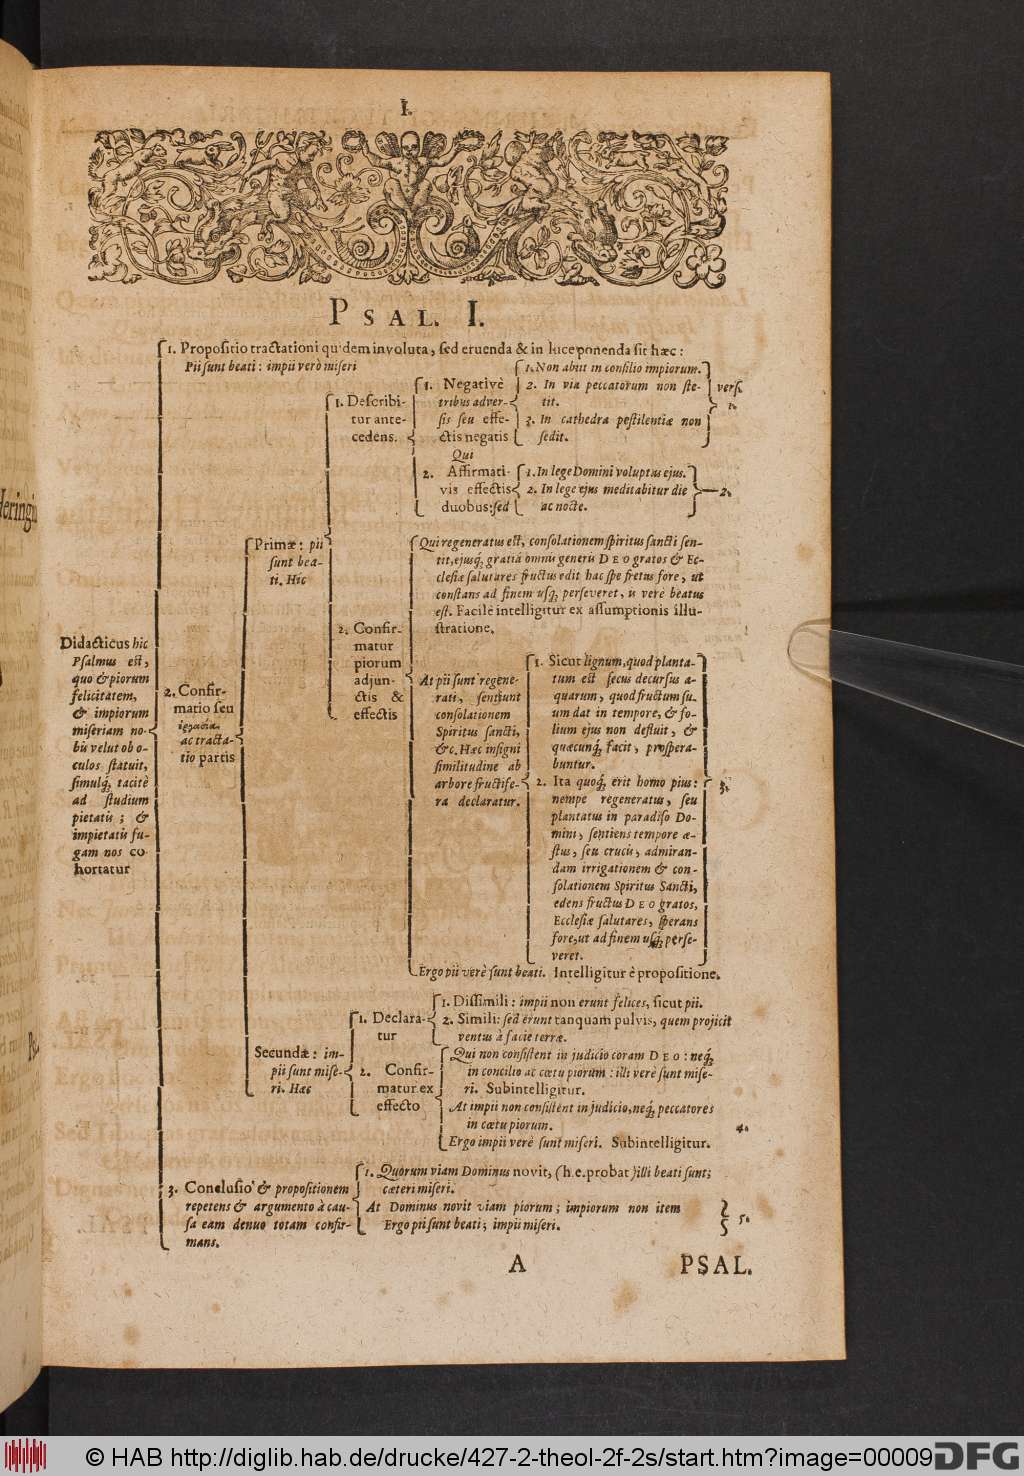 I.
PSAL. I.
1. Propositio tractationi quidem involuta, sed eruenda & in luce ponenda sit hæc:
Pii sunt beati: impii verò miseri
1. Describi-
tur ante-
cedens.
1. Negativè
tribus adver-
sis seu effe-
ctis negatis
Qui
1. Non abiit in consilio impiorum.
2. In via peccatorum non ste-
tit.
3. In cathedra pestilentiæ non
sedit.
vers.
1.
2. Affirmati-
vis effectis
duobus: sed
1. In lege Domini voluptas ejus.
2. In lege ejus meditabitur die
ac nocte.
2.
Didacticus hic
Psalmus est,
quo & piorum
felicitatem,
& impiorum
miseriam no-
bis velut ob o-
culos statuit,
simulq́; tacitè
ad studium
pietatis; &
impietatis fu-
gam nos co-
hortatur
2. Confir-
matio seu
ac tracta-
tio partis
Primæ: pii
sunt bea-
ti. Hic
2. Confir-
matur
piorum
adjun-
ctis &
effectis
Qui regeneratus est, consolationem spiritus sancti sen-
tit, ejusq́; gratiâ omnis generis DEO gratos & Ec-
clesiæ salutares fructus edit hac spe fretus fore, ut
constans ad finem usq́; perseveret, is verè beatus
est. Facilè intelligitur ex assumptionis illu-
stratione.
At pii sunt regene-
rati, sentiunt
consolationem
Spiritus sancti,
&c. Hæc insigni
similitudine ab
arbore fructife-
ra declaratur.
1. Sicut lignum, quod planta-
tum est secus decursus a-
quarum, quod fructum su-
um dat in tempore, & fo-
lium ejus non defluit, &
quæcunq́; facit, prospera-
buntur.
2. Ita quoq́; erit homo pius:
nempe regeneratus, seu
plantatus in paradiso Do-
mini, sentiens tempore æ-
stus, seu crucis, admiran-
dam irrigationem & con-
solationem Spiritus Sancti,
edens fructus DEO gratos,
Ecclesiæ salutares, sperans
fore, ut ad finem usq́; perse-
veret.
3.
Ergo pii verè sunt beati. Intelligitur è propositione.
Secundæ: im-
pii sunt mise-
ri. Hæc
1. Declara-
tur
1. Dissimili: impii non erunt felices, sicut pii.
2. Simili: sed erunt tanquam pulvis, quem projicit
ventus à facie terræ.
2. Confir-
matur ex
effecto
Qui non consistent in judicio coram DEO: neq́;
in concilio ac cœtu piorum: illi verè sunt mise-
ri. Subintelligitur.
At impii non consistent in judicio, neq́; peccatores
in cœtu piorum.
Ergo impii verè sunt miseri. Subintelligitur.
4.
3. Conclusio & propositionem
repetens & argumento à cau-
sa eam denuo totam confir-
mans.
1. Quorum viam Dominus novit, (h. e. probat) illi beati sunt;
cæteri miseri.
At Dominus novit viam piorum; impiorum non item
Ergo pii sunt beati; impii miseri.
5.
A
PSAL.
© HAB http://diglib.hab.de/drucke/427-2-theol-2f-2s/start.htm?image=00009
DFG